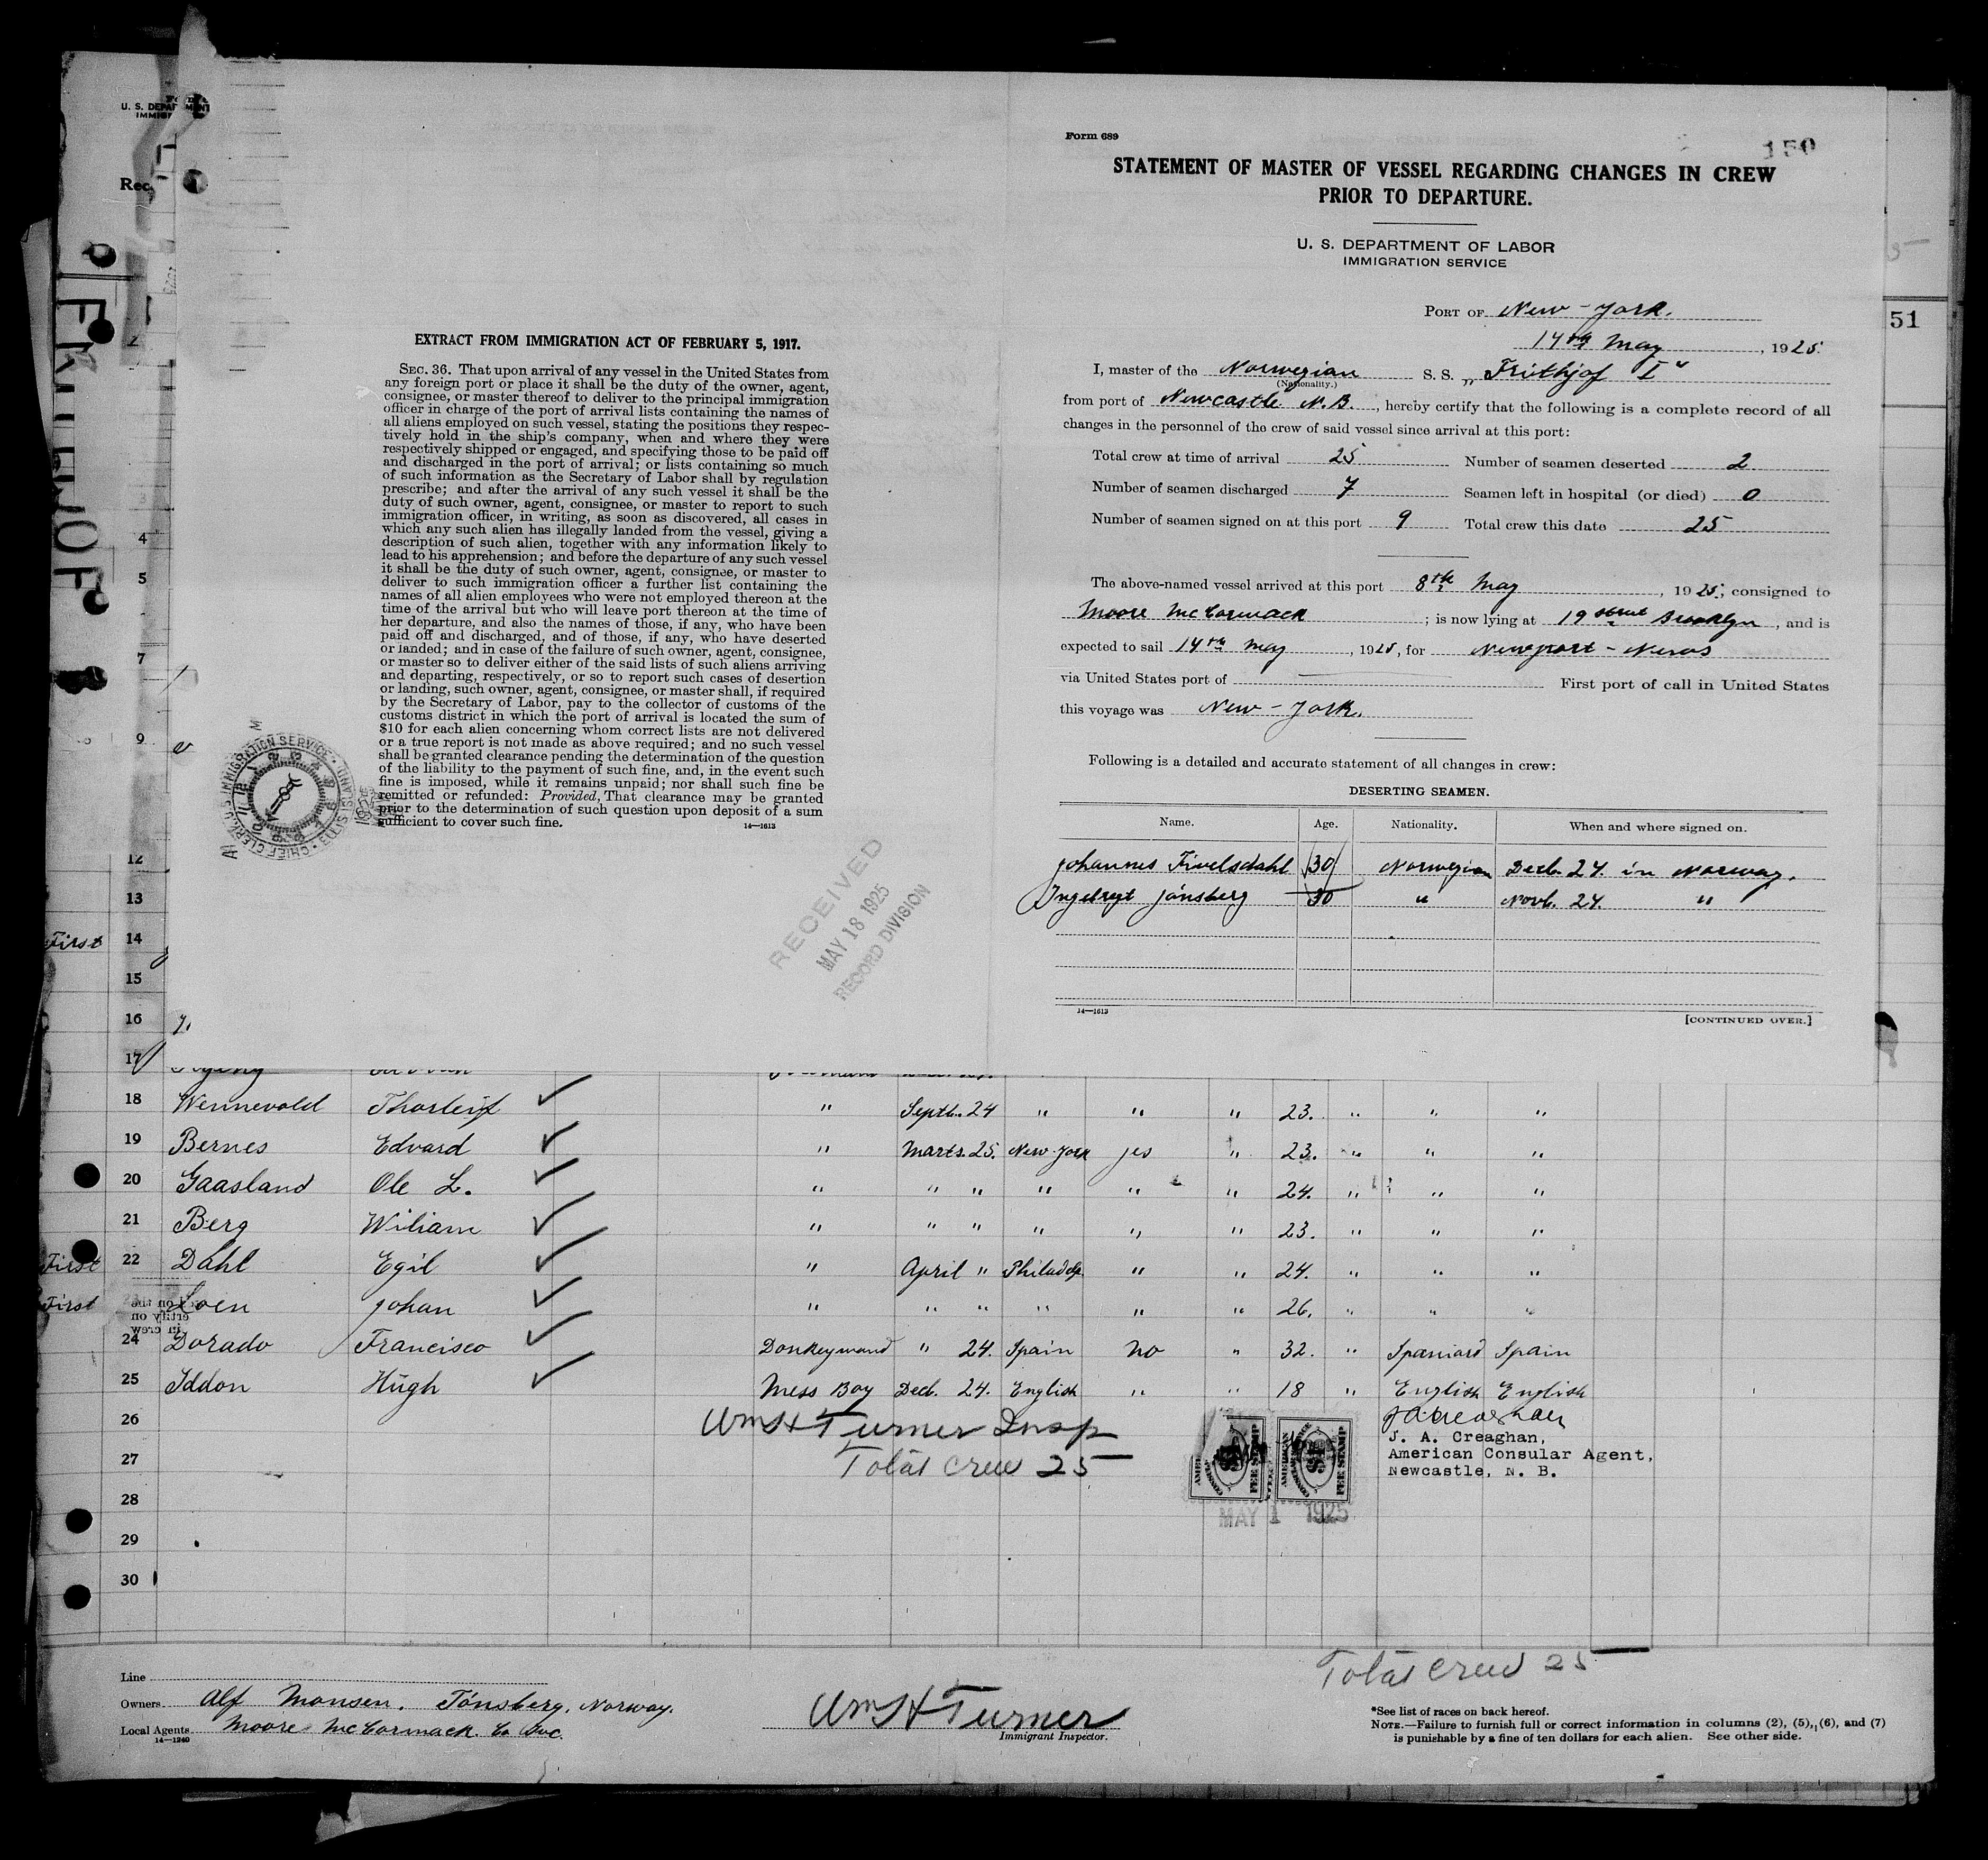 U. S. DEPARTMENT
Rec
Form 689
150
STATEMENT OF MASTER OF VESSEL REGARDING CHANGES IN CREW
PRIOR TO DEPARTURE.
U. S. DEPARTMENT OF LABOR
IMMIGRATION SERVICE
PORT OF New-York.
14th May, 1925.
I, master of the Norwegian S. S. „Frithjof I"
(Nationality.)
from port of Newcastle N.B., hereby certify that the following is a complete record of all
changes in the personnel of the crew of said vessel since arrival at this port:
Total crew at time of arrival 25 Number of seamen deserted 2
Number of seamen discharged 7 Seamen left in hospital (or died) 0
Number of seamen signed on at this port 9 Total crew this date 25
The above-named vessel arrived at this port 8th May, 1925, consigned to
Moore McCormack; is now lying at 19 street Brooklyn, and is
expected to sail 14th May, 1925, for Newport-News
via United States port of First port of call in United States
this voyage was New-York.
Following is a detailed and accurate statement of all changes in crew:
DESERTING SEAMEN.
Name. Age. Nationality. When and where signed on.
Johannes Fivelsdahl 30 Norwegian Decb. 24. in Norway.
Ingebregt Jónsberg 30 " Novb. 24. "
14—1613
[CONTINUED OVER.]
EXTRACT FROM IMMIGRATION ACT OF FEBRUARY 5, 1917.
SEC. 36. That upon arrival of any vessel in the United States from
any foreign port or place it shall be the duty of the owner, agent,
consignee, or master thereof to deliver to the principal immigration
officer in charge of the port of arrival lists containing the names of
all aliens employed on such vessel, stating the positions they respec-
tively hold in the ship's company, when and where they were
respectively shipped or engaged, and specifying those to be paid off
and discharged in the port of arrival; or lists containing so much
of such information as the Secretary of Labor shall by regulation
prescribe; and after the arrival of any such vessel it shall be the
duty of such owner, agent, consignee, or master to report to such
immigration officer, in writing, as soon as discovered, all cases in
which any such alien has illegally landed from the vessel, giving a
description of such alien, together with any information likely to
lead to his apprehension; and before the departure of any such vessel
it shall be the duty of such owner, agent, consignee, or master to
deliver to such immigration officer a further list containing the
names of all alien employees who were not employed thereon at the
time of the arrival but who will leave port thereon at the time of
her departure, and also the names of those, if any, who have been
paid off and discharged, and of those, if any, who have deserted
or landed; and in case of the failure of such owner, agent, consignee,
or master so to deliver either of the said lists of such aliens arriving
and departing, respectively, or so to report such cases of desertion
or landing, such owner, agent, consignee, or master shall, if required
by the Secretary of Labor, pay to the collector of customs of the
customs district in which the port of arrival is located the sum of
$10 for each alien concerning whom correct lists are not delivered
or a true report is not made as above required; and no such vessel
shall be granted clearance pending the determination of the question
of the liability to the payment of such fine, and, in the event such
fine is imposed, while it remains unpaid; nor shall such fine be
remitted or refunded: Provided, That clearance may be granted
prior to the determination of such question upon deposit of a sum
sufficient to cover such fine.
14—1613
CHIEF CLERK, U.S. IMMIGRATION SERVICE
ELLIS ISLAND
RECEIVED
MAY 18 1925
RECORD DIVISION
51
4
5
7
9
12
13
First 14
15
16
17
18 Wennevold Thorleif " Septb. 24 " " " 23. " " "
19 Bernes Edvard " Marts. 25. New-York yes " 23. " " "
20 Gaasland Ole L. " " " " " " 24. " " "
21 Berg Wiliam " " " " " " 23. " " "
First 22 Dahl Egil " April " Philadelp. " " 24. " " "
First Loen Johan " " " " " " 26. " " "
24 Dorado Francisco Donkeymand " 24. Spain No " 32. " Spaniard Spain
25 Iddon Hugh Mess Boy Decb. 24. English " " 18 " English English
26 Wm H Turner Insp
J. A. Creaghan,
27 Total Crew 25
American Consular Agent,
Newcastle, N. B.
28
AMERICAN FEE STAMP
AMERICAN FEE STAMP
MAY 1 1925
29
30
Total Crew 25
Line
Owners Alf Monsen. Tónsberg, Norway.
Local Agents Moore McCormack. Co Inc.
14—1240
Wm H Turner
Immigrant Inspector.
*See list of races on back hereof.
NOTE.—Failure to furnish full or correct information in columns (2), (5), (6), and (7)
is punishable by a fine of ten dollars for each alien. See other side.